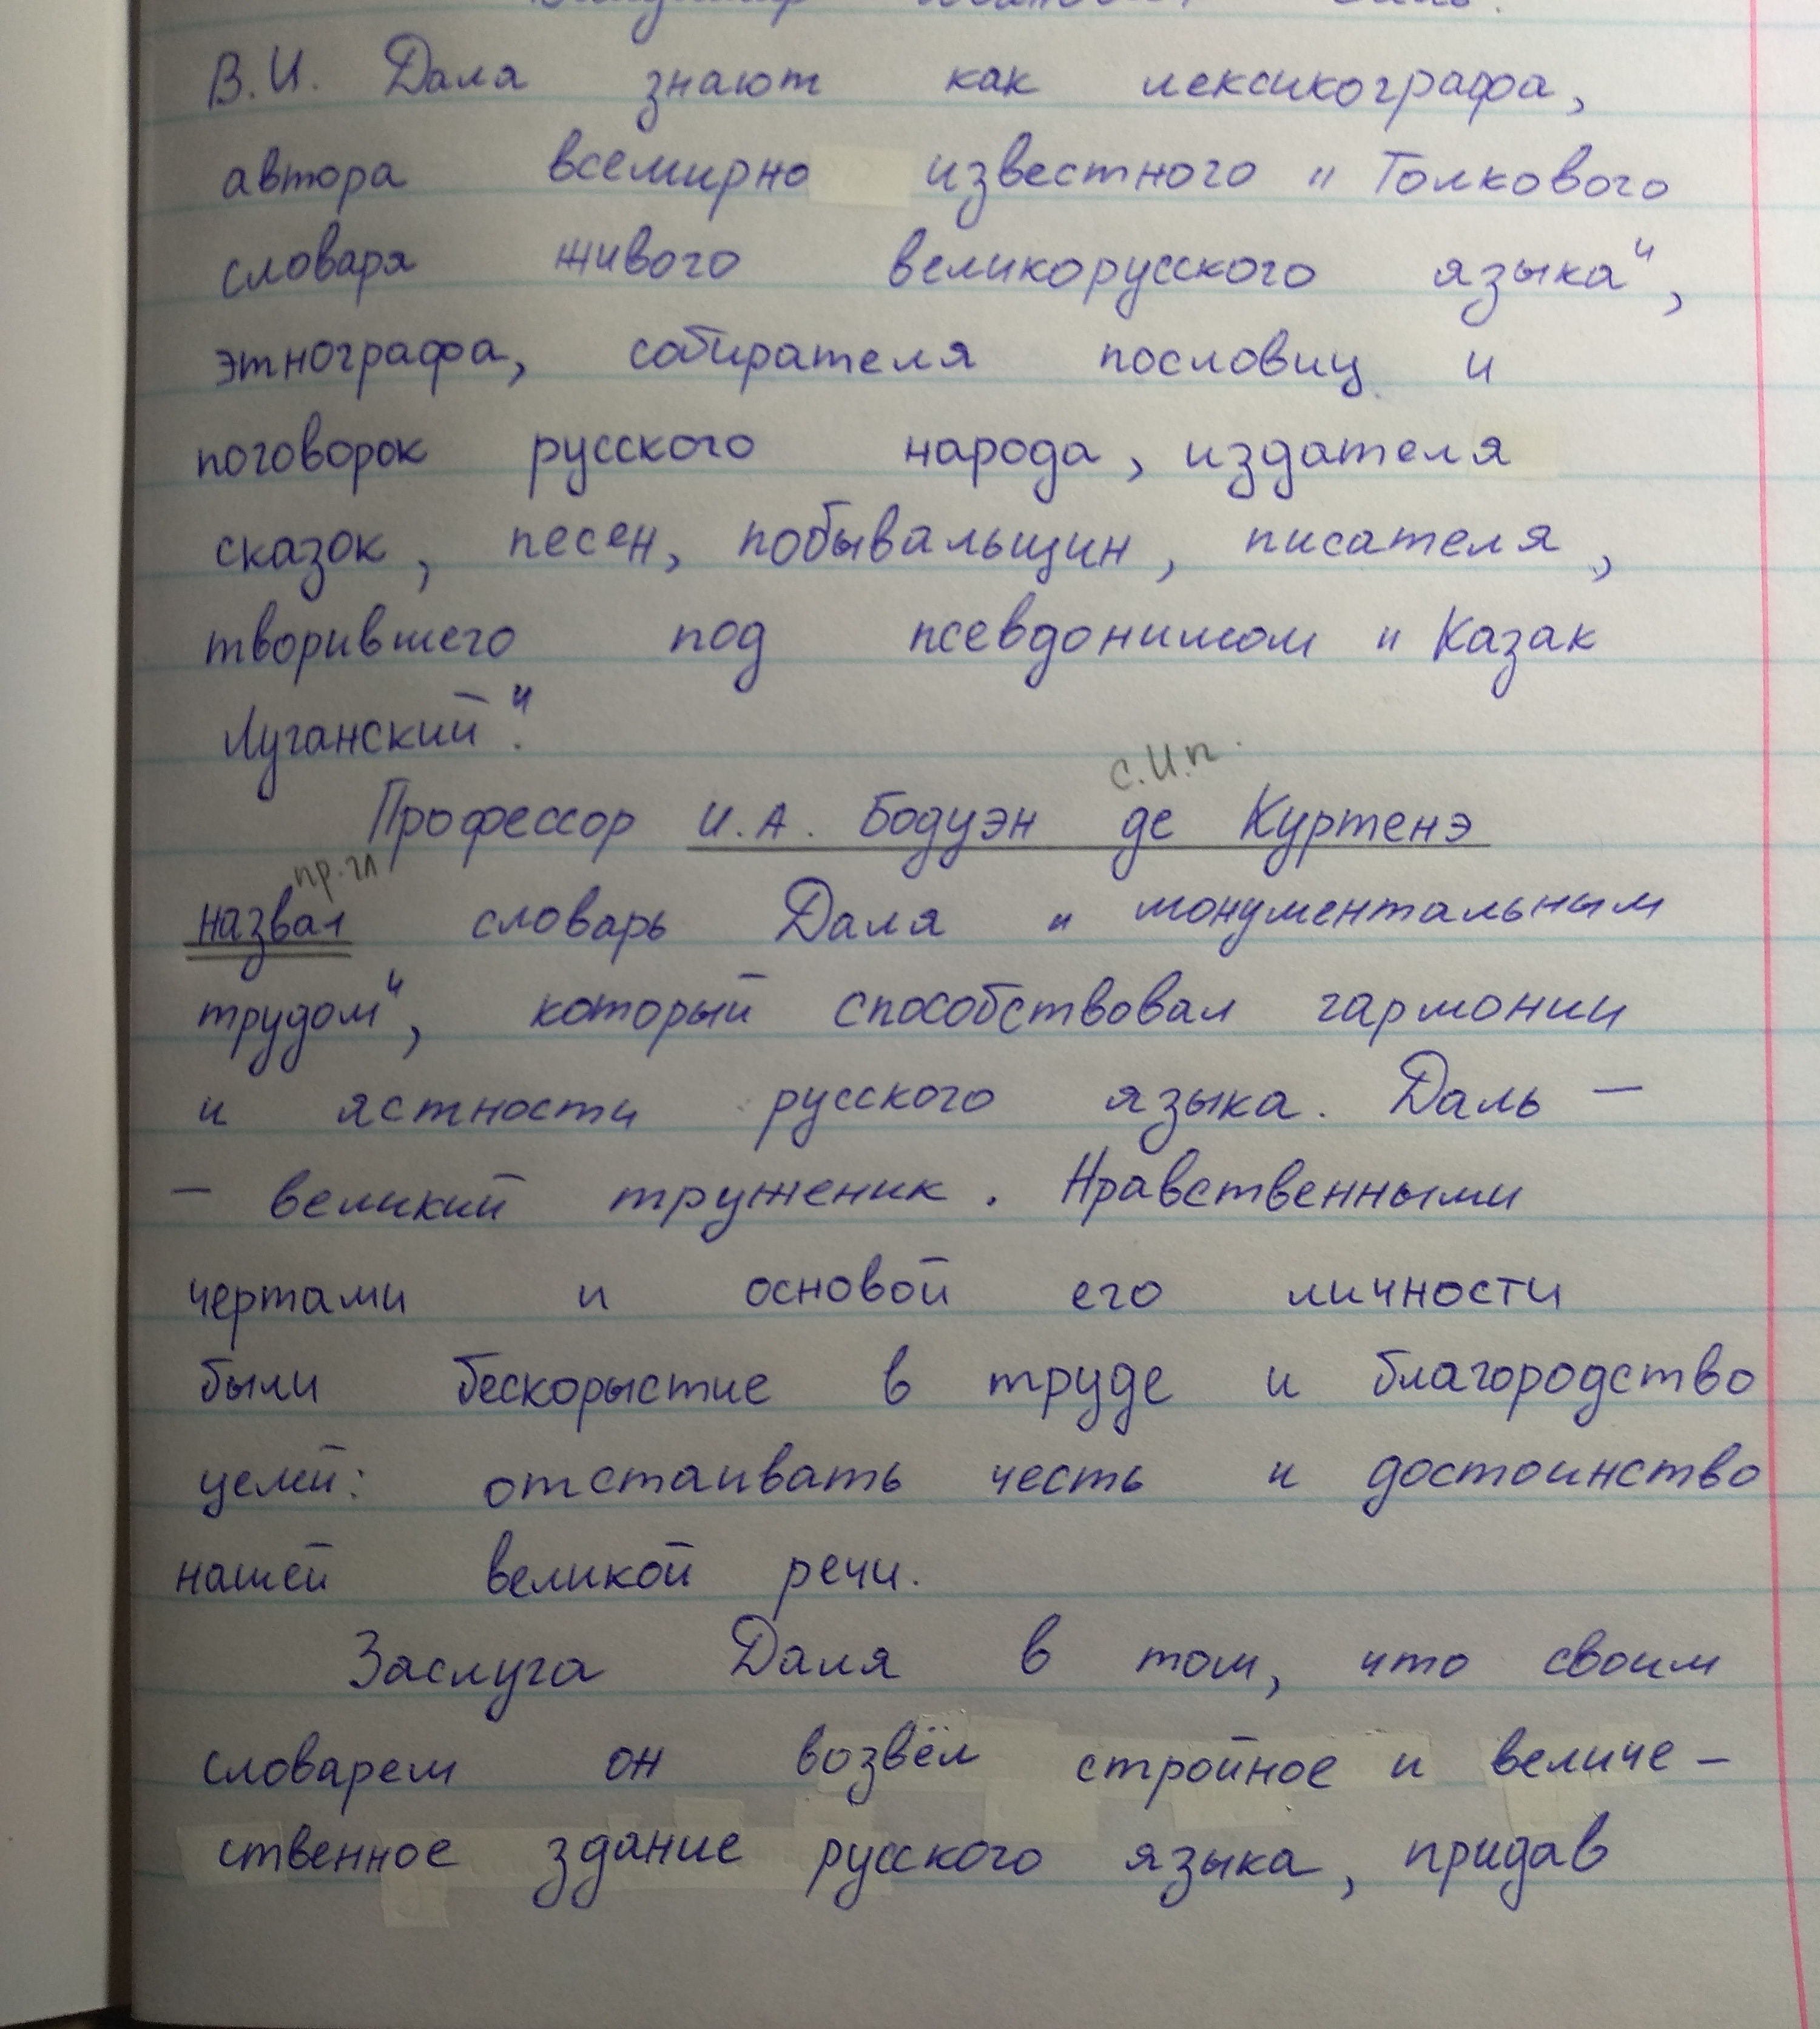 В.И. Даля знают как лексикографа,
автора всемирно известного "Толкового
словаря живого великорусского языка",
этнографа, собирателя пословиц и
поговорок русского народа, издателя
сказок, песен, побывальщин, писателя,
творившего под псевдонимом "Казак
Луганский".
с.И.п.
Профессор И.А. Бодуэн де Куртенэ
пр.гл
назвал словарь Даля "монументальным
трудом", который способствовал гармонии
и ястности русского языка. Даль –
– великий труженик. Нравственными
чертами и основой его личности
были бескорыстие в труде и благородство
целей: отстаивать честь и достоинство
нашей великой речи.
Заслуга Даля в том, что своим
словарем он возвёл стройное и величе-
ственное здание русского языка, придав